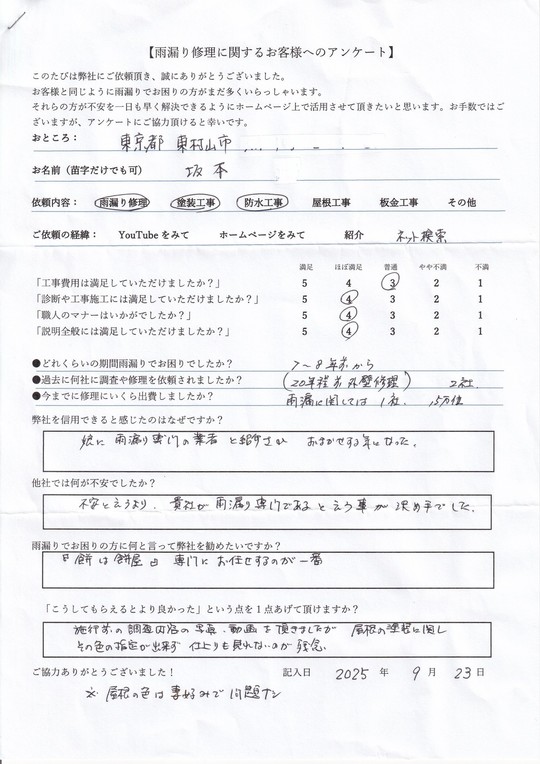 【雨漏り修理に関するお客様へのアンケート】
このたびは弊社にご依頼頂き、誠にありがとうございました。
お客様と同じように雨漏りでお困りの方がまだ多くいらっしゃいます。
それらの方が不安を一日も早く解決できるようにホームページ上で活用させて頂きたいと思います。お手数ではご
ざいますが、アンケートにご協力頂けると幸いです。
おところ： 東京都 東村山市
お名前（苗字だけでも可） 坂本
依頼内容： 雨漏り修理 塗装工事 防水工事 屋根工事 板金工事 その他
ご依頼の経緯： YouTubeをみて ホームページをみて 紹介 ネット検索
満足 ほぼ満足 普通 やや不満 不満
「工事費用は満足していただけましたか？」 5 4 3 2 1
「診断や工事施工には満足していただけましたか？」 5 4 3 2 1
「職人のマナーはいかがでしたか？」 5 4 3 2 1
「説明全般には満足していただけましたか？」 5 4 3 2 1
●どれくらいの期間雨漏りでお困りでしたか？ 7〜8年前から
●過去に何社に調査や修理を依頼されましたか？ (20年程前 外壁修理) 2社.
●今までに修理にいくら出費しましたか？ 雨漏に関しては 1社. 15万位
弊社を信用できると感じたのはなぜですか？
娘に 雨漏り専門の業者 と紹介され おまかせする気になった.
他社では何が不安でしたか？
不安と云うより、貴社が雨漏り専門であると云う事が決め手でした.
雨漏りでお困りの方に何と言って弊社を勧めたいですか？
『餅は餅屋』 専門にお任せするのが一番
「こうしてもらえるとより良かった」という点を１点あげて頂けますか？
施行前の調査内容の写真、動画を頂きましたが 屋根の塗装に関し
その色の指定が出来ず 仕上りも見れないのが残念.
ご協力ありがとうございました！ 記入日 2025 年 9 月 23 日
※ 屋根の色は妻好みで問題ナシ